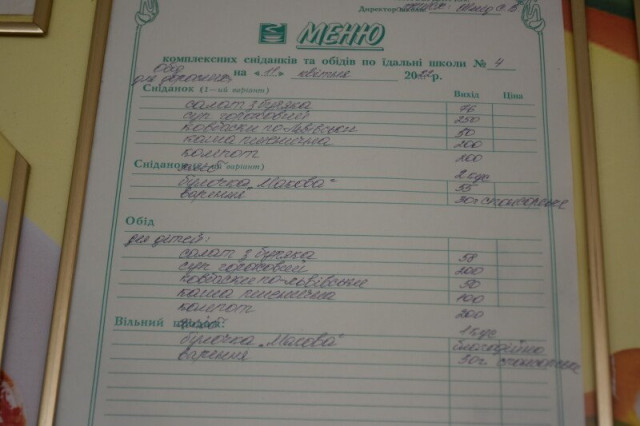 Директор
МЕНЮ
комплексних сніданків та обідів по їдальні школи № 4
Обід
на «11» квітня 20 р.
для
Сніданок (1-ий варіант) Вихід Ціна
салат з буряка 75
суп гороховий 250
ковбаски по-львівськи 50
каша пшенична 200
компот 200
Сніданок варіант) 2 кус
булочка „Макова" 55
варення 30г спонсорське
Обід
для дітей:
салат з буряка 55
суп гороховий 200
ковбаски по-львівськи 50
каша пшенична 100
компот 200
Вільний 1 кус
булочка „Макова" благодійно
варення 30г спонсорське